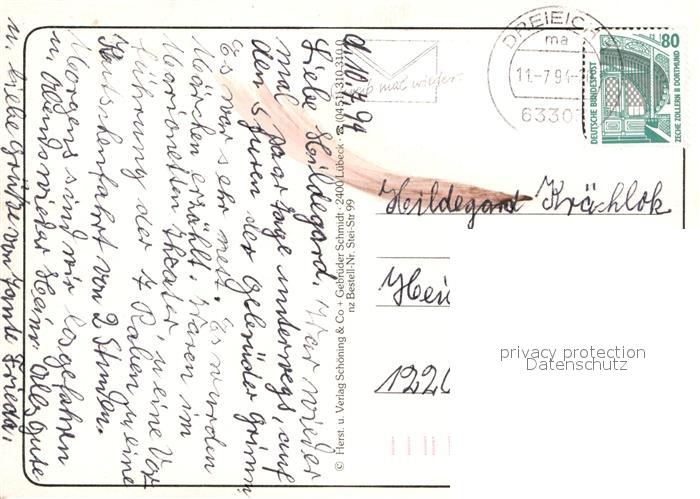 d. 10.7.94
Liebe Hildegard. War wieder
mal paar Tage unterwegs, auf
den Spuren der Gebrüder Grimm
Es war sehr nett. Es wurden
Märchen erzählt. Waren im
Marionetten Theater, u. eine Vor
führung der 7 Raben u. eine
Kutschenfahrt von 2 Stunden.
Morgens sind wir losgefahren
u. Abends wieder Heim. Alles Gute
u. liebe Grüße von Tante Frieda.
© Herst. u. Verlag Schöning & Co + Gebrüder Schmidt · 2400 Lübeck · ☎ (0451) 310 310
nz Bestell-Nr. Stei-Str 99
mal wieder
DREIEICH
ma
11.-7.94-
6330
80
DEUTSCHE BUNDESPOST
ZECHE ZOLLERN II DORTMUND
Hildegard Krächlok
122
privacy protection
Datenschutz